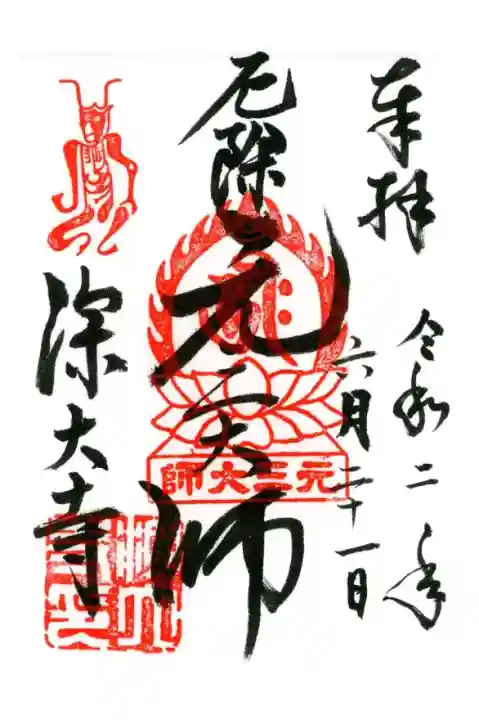 奉拝
令和二年
六月二十一日
厄除
元三大師
元三大師
深大寺